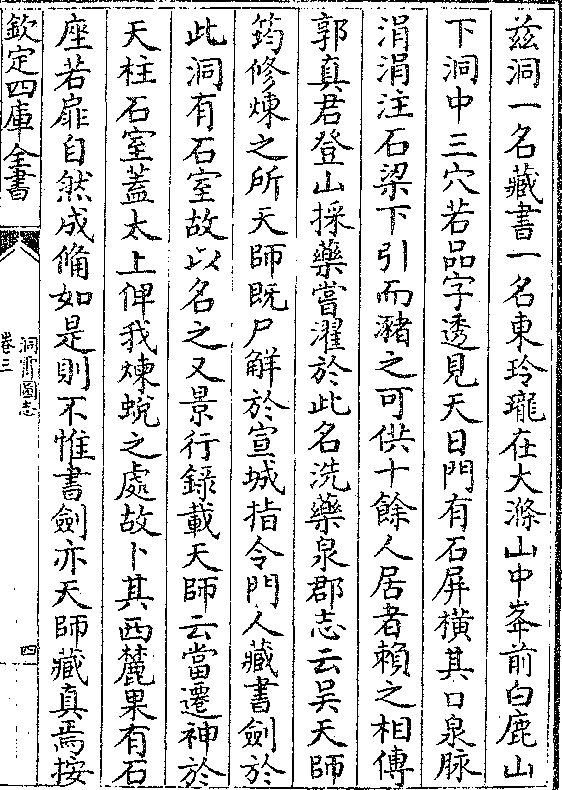 茲洞一名藏書一名東玲瓏在大滌山中峯前白鹿山
下洞中三穴若品字透見天日門有石屏橫其口泉脉
涓涓注石梁下引而瀦之可供十餘人居者賴之相傳
郭真君登山採藥嘗濯於此名洗藥泉郡志云吴天師
筠修煉之所天師既尸解於宣城指令門人藏書劍於
此洞有石室故以名之又景行錄載天師云當遷神於
天柱石室蓋太上俾我煉蛻之處故卜其西麓果有石
座若扉自然成脩如是則不惟書劍亦天師藏真焉按
欽定四庫全書
洞霄圖志
卷三
四